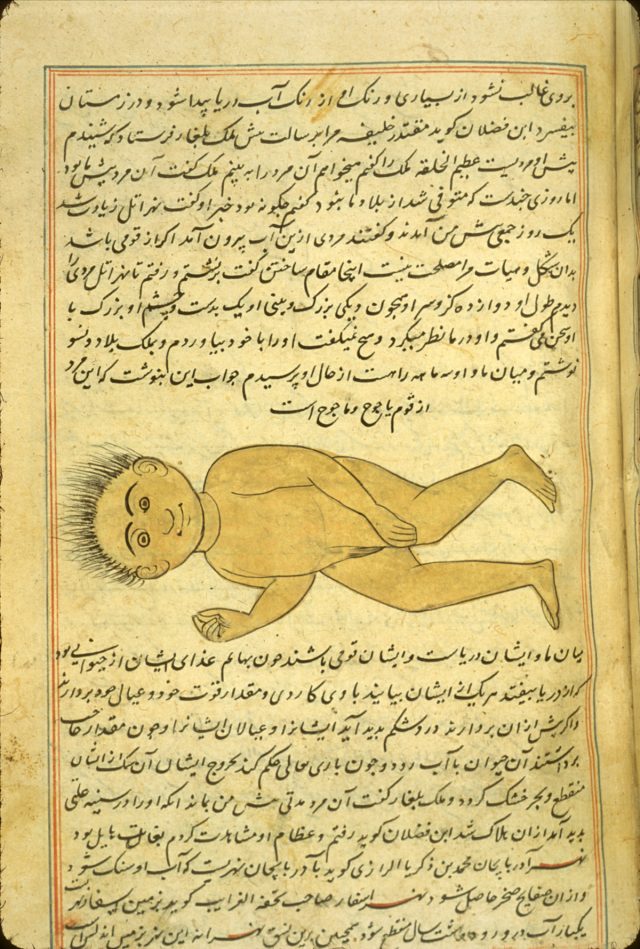 بروی غالب نشود از بسیاری و رنک او از رنک آب دریا پیدا شود و در زمستان
بیفسرد ابن فضلان کوید مقتدر خلیفه مرا برسالت پیش ملک بلغار فرستاد که شنیدم
پیش او مردیست عظیم الخلقه ملک را کفتم میخواهم آن مرد را به بینم ملک کفت آن مرد پیش ما بود
اما روزی چندست که متوفی شد از بلاد ما نبود کفتم چکونه بود خبر او کفت نهر اتل زیادت شد
یک روز جمعی پیش من آمدند و کفتند مردی ازین آب بیرون آمد اکر از قومی باشد
بدان شکل و هیات مرا مصلحت نیست اینجا مقام ساختن کفت برنشستم و رفتم تا نهر اتل مردی را
دیدم طول او دوازده کز و سر او همچون دیکی بزرک و بینی او یک بدست و چشم او بزرک با
او سخن می کفتم و او در ما نظر میکرد و هیچ نمیکفت او را با خود بیاوردم و بملک بلاد
نوشتم و میان ما و او سه ماهه راهست از حال او پرسیدم جواب این نبوشت که این مرد
از قوم یاجوج و ماجوج است
میان ما و ایشان دریاست و ایشان قومی باشند چون بهایم غذای ایشان از حیوانی بود
که از دریا بیفتد هر یک از ایشان بیایند با وی کاردی و مقدار قوت خود و عیال خود بردارند
و اکر بیش از ان بردارند درد شکم بدید آید ایشانرا و عیالان ایشانرا و چون مقدار حاجت
برداشتند آن حیوان باآب رود و چون باری تعالی حکم کند بخروج ایشان آن سمک از ایشان
منقطع و بحر خشک کردد و ملک بلغار کفت آن مرد مدتی پیش من بماند انکه او را در سینه علتی
بدید آمد از ان هلاک شد ابن فضلان کوید رفتم و عظام او مشاهدت کردم بغایت هایل بود
نهر آذربایجان محمد بن ذکریا الرازی کوید بآذربایجان نهریست که آب او سنک شود
و از ان صفایح صخر حاصل شود نهر اسفار صاحب تحفة الغرایب کوید بزمین اسفار نهریست
یکبار آب درو رود سال منقطع شود همچنین